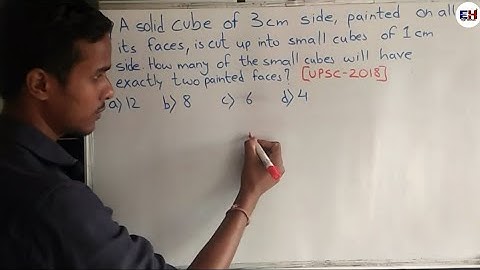 A solid cube of 3cm side, painted on all
its faces, is cut up into small cubes of 1cm
side. How many of the small cubes will have
exactly two painted faces? [UPSC-2018]
a) 12 b) 8 c) 6 d) 4
EH